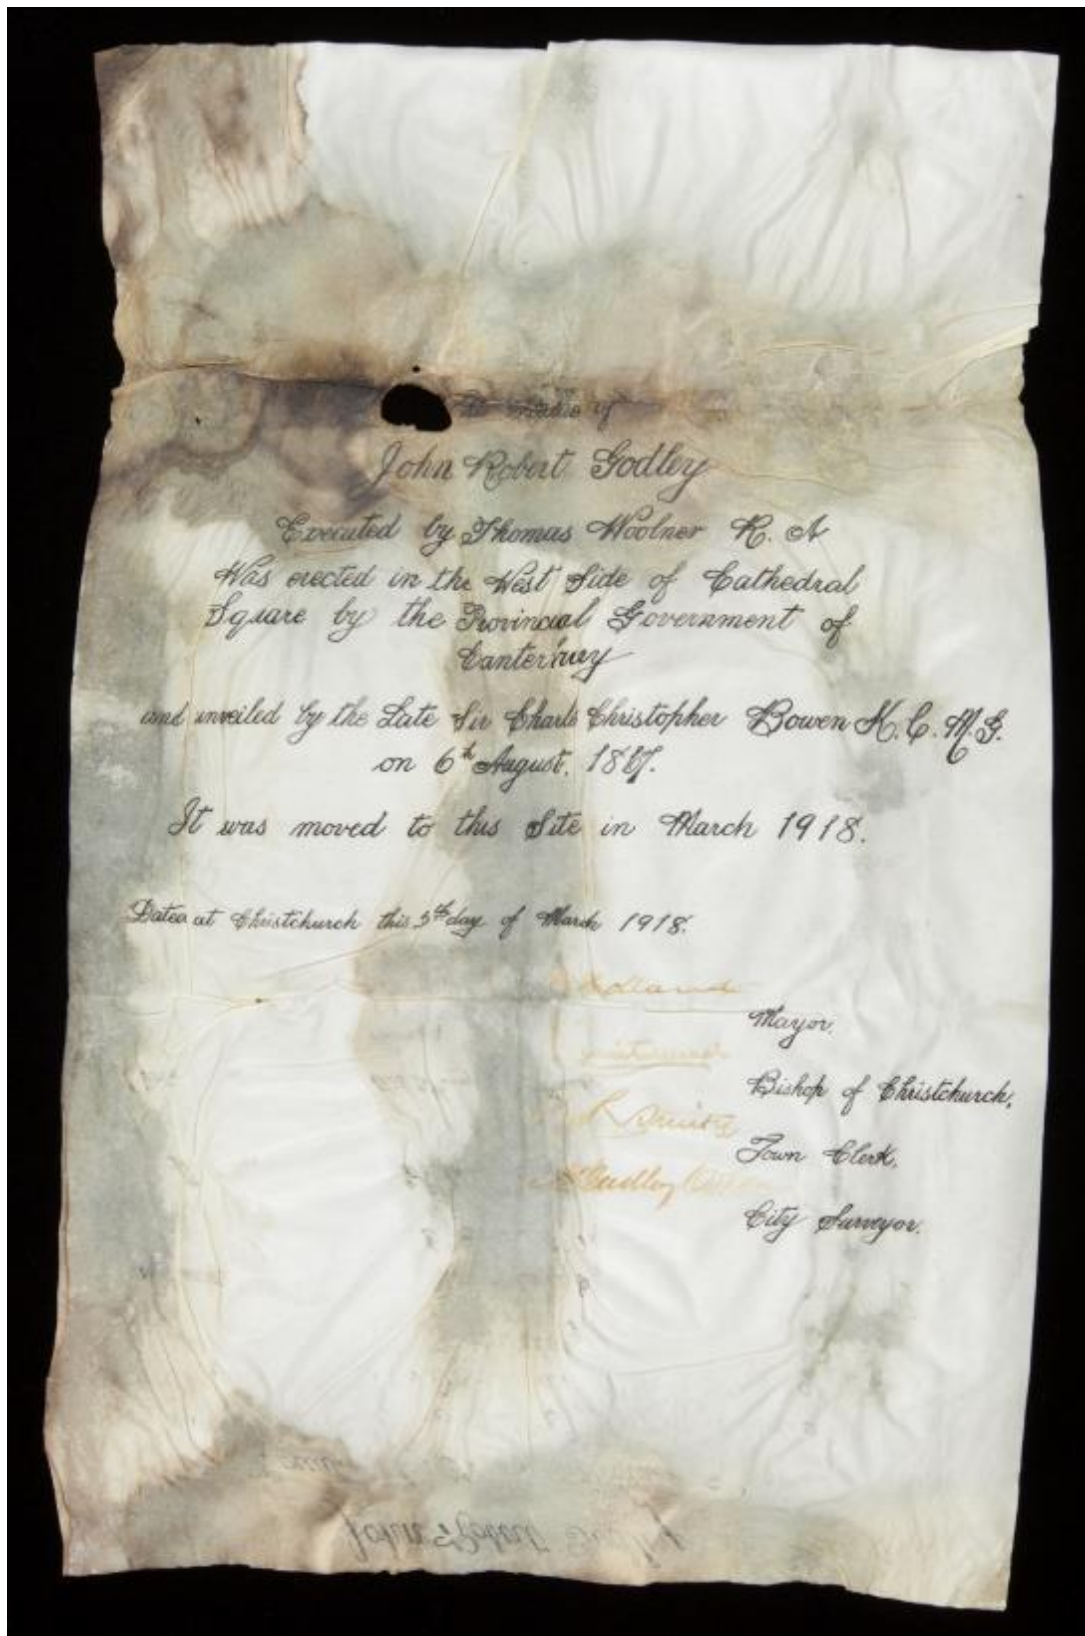 of
John Robert Godley
Executed by Thomas Woolner R. A
Was erected in the West Side of Cathedral
Square by the Provincial Government of
Canterbury
and unveiled by the Late Sir Charles Christopher Bowen K. C. M. G.
on 6th August. 1867.
It was moved to this Site in March 1918.
Dated at Christchurch this 5th day of March 1918.
Holland
Mayor.
Bishop of Christchurch.
R Smith
Town Clerk.
City Surveyor.
John Robert